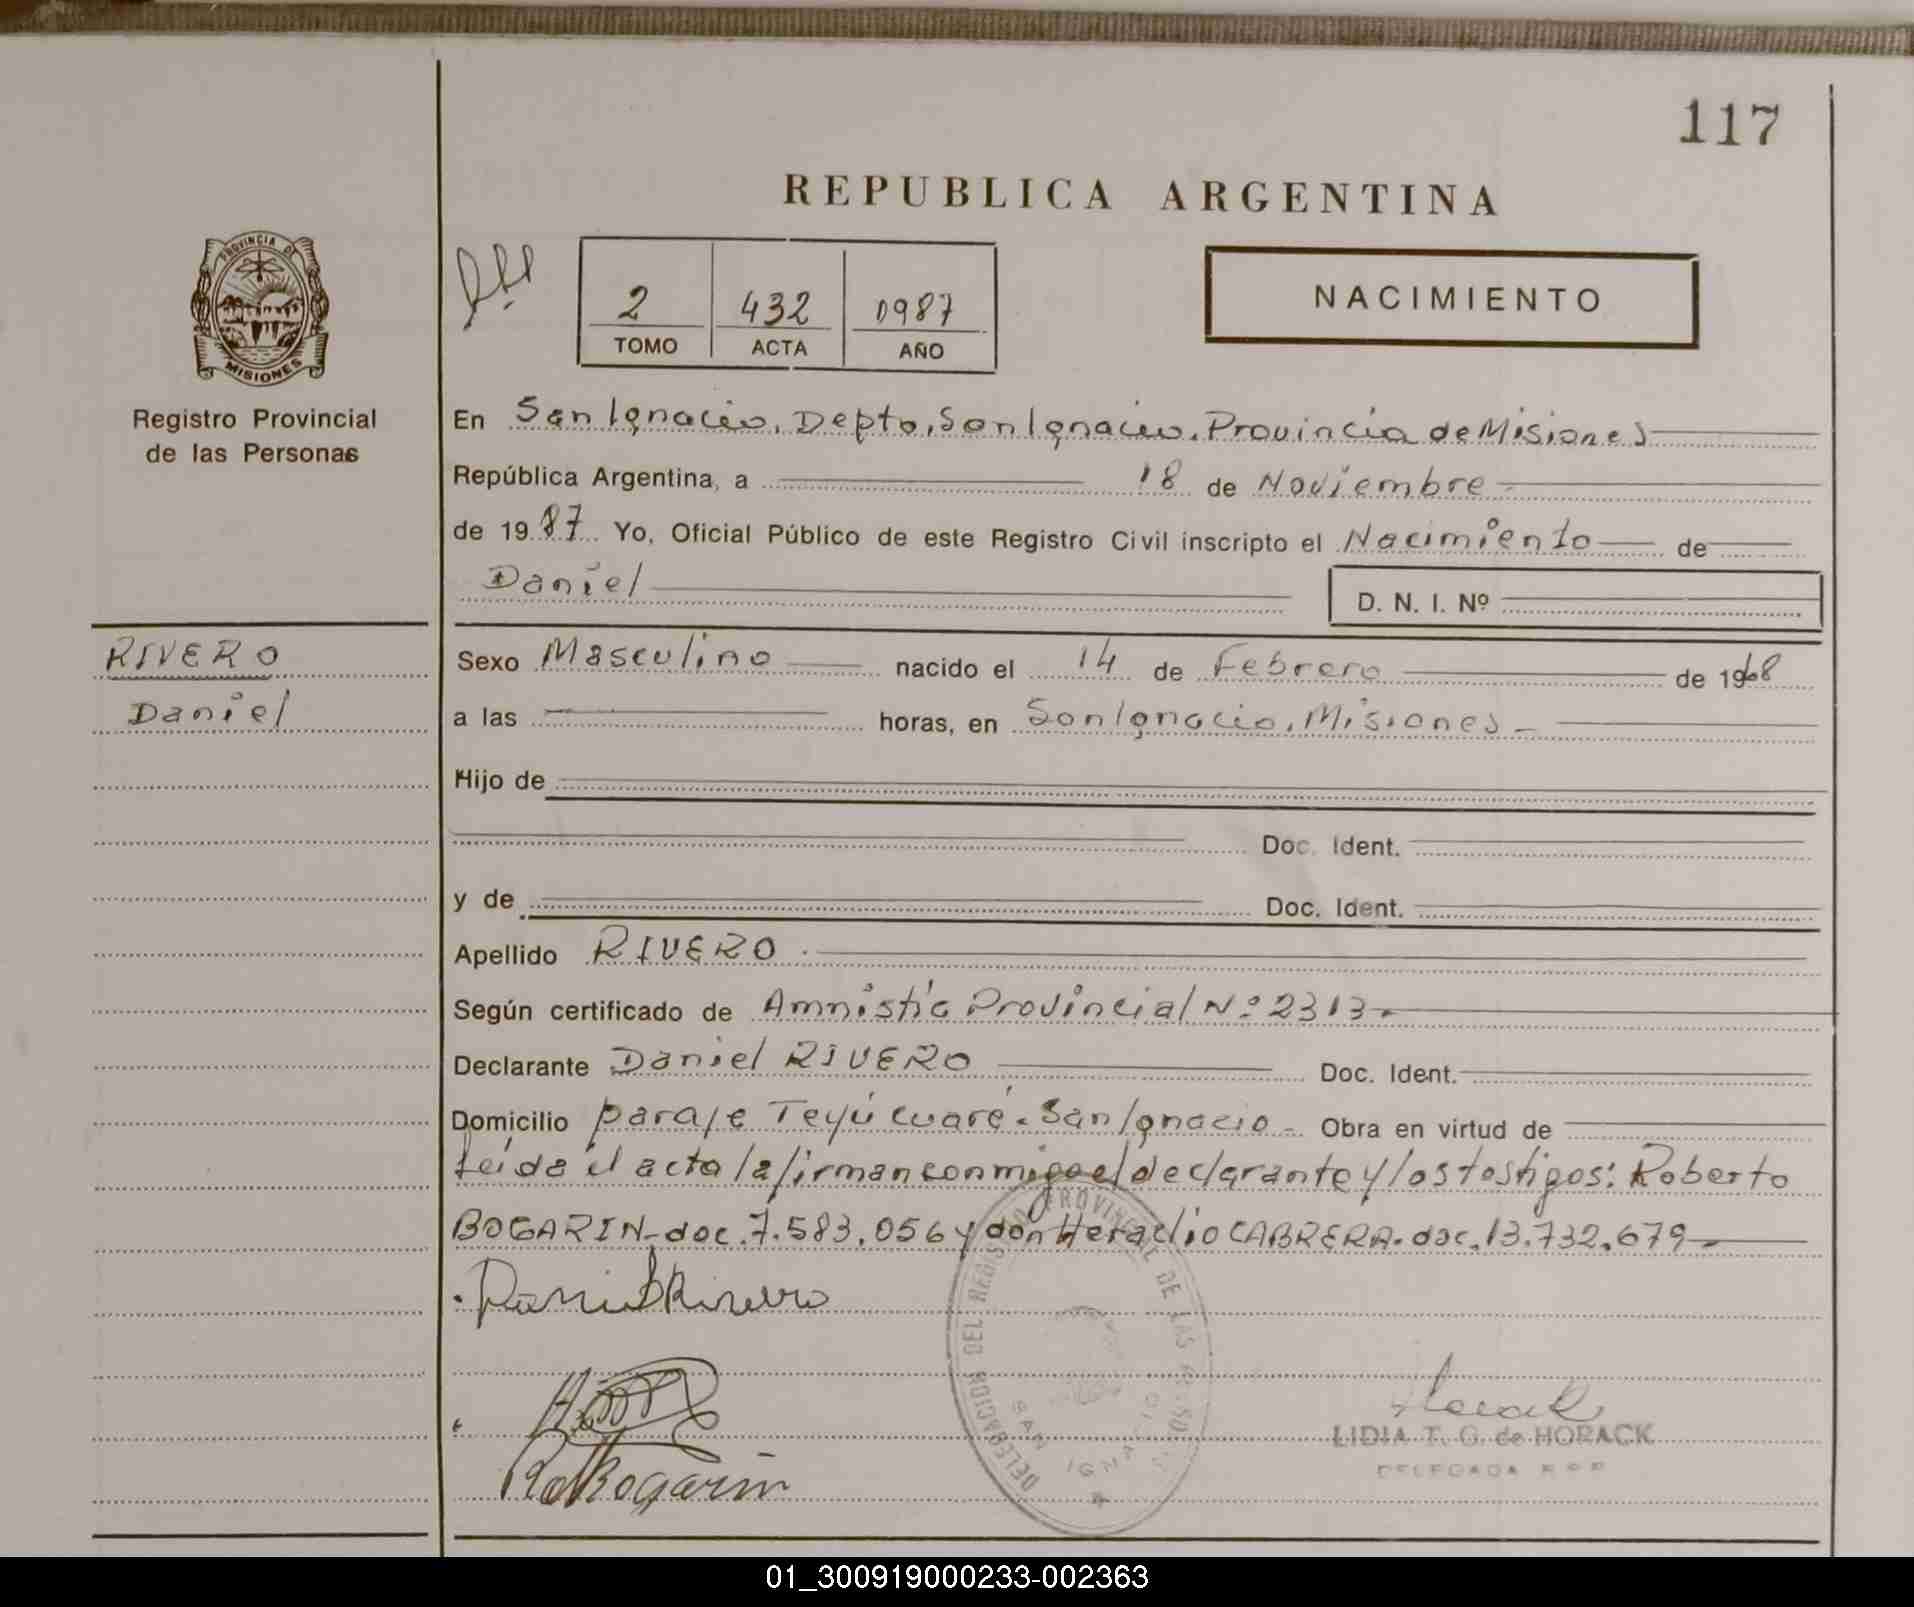 117
REPUBLICA ARGENTINA
PROVINCIA DE
MISIONES
Registro Provincial
de las Personas
2 432 0987
TOMO ACTA AÑO
NACIMIENTO
En San Ignacio, Depto, San Ignacio. Provincia de Misiones
República Argentina, a 18 de Noviembre
de 1987 Yo, Oficial Público de este Registro Civil inscripto el Nacimiento de
Daniel D. N. I. Nº
RIVERO
Daniel
Sexo Masculino nacido el 14 de Febrero de 1968
a las horas, en San Ignacio, Misiones
Hijo de
Doc. Ident.
y de Doc. Ident.
Apellido RIVERO
Según certificado de Amnistía Provincial Nº 2313
Declarante Daniel RIVERO Doc. Ident.
Domicilio paraje Teyú cuaré. San Ignacio Obra en virtud de
Leída el acta la firman conmigo el declarante y los testigos: Roberto
BOGARIN-doc.7.583.056 y don Heraclio CABRERA.doc.13.732.679
Daniel Rivero
DELEGACION DEL REGISTRO PROVINCIAL DE LAS PERSONAS
SAN IGNACIO
Horack
LIDIA T. G. de HORACK
DELEGADA R P P
Ro Bogarin
01_300919000233-002363